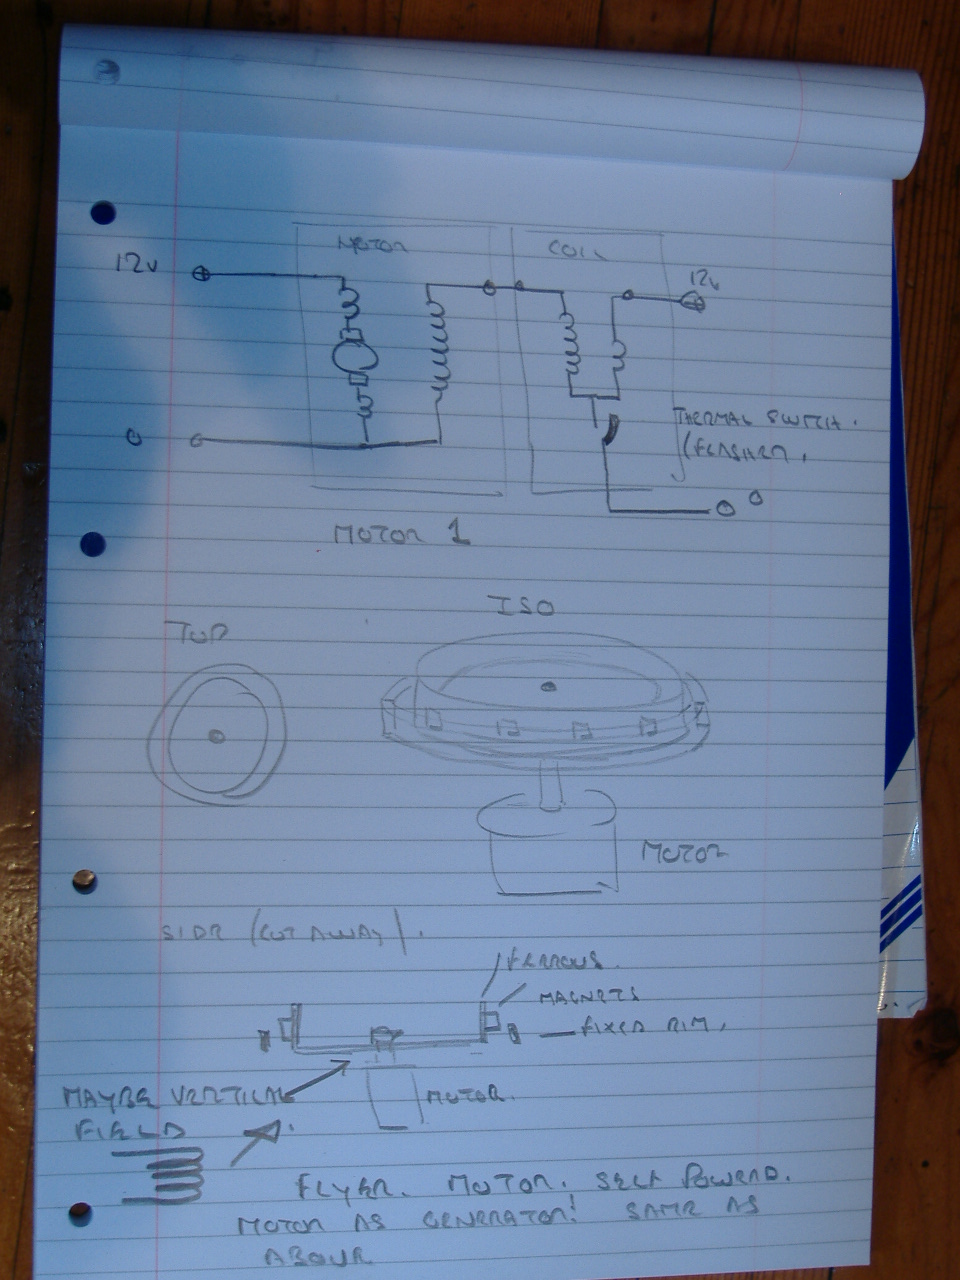 MOTOR
COIL
12v
12v
THERMAL SWITCH.
(FLASHER,
0
0
MOTOR 1
ISO
TOP
MOTOR
SIDE (CUT AWAY).
FERROUS.
MAGNETS
FIXED RIM,
MAYBE VERTICAL
FIELD
MOTOR.
FLYER. MOTOR. SELF POWERD.
MOTOR AS GENERATOR! SAME AS
ABOVE